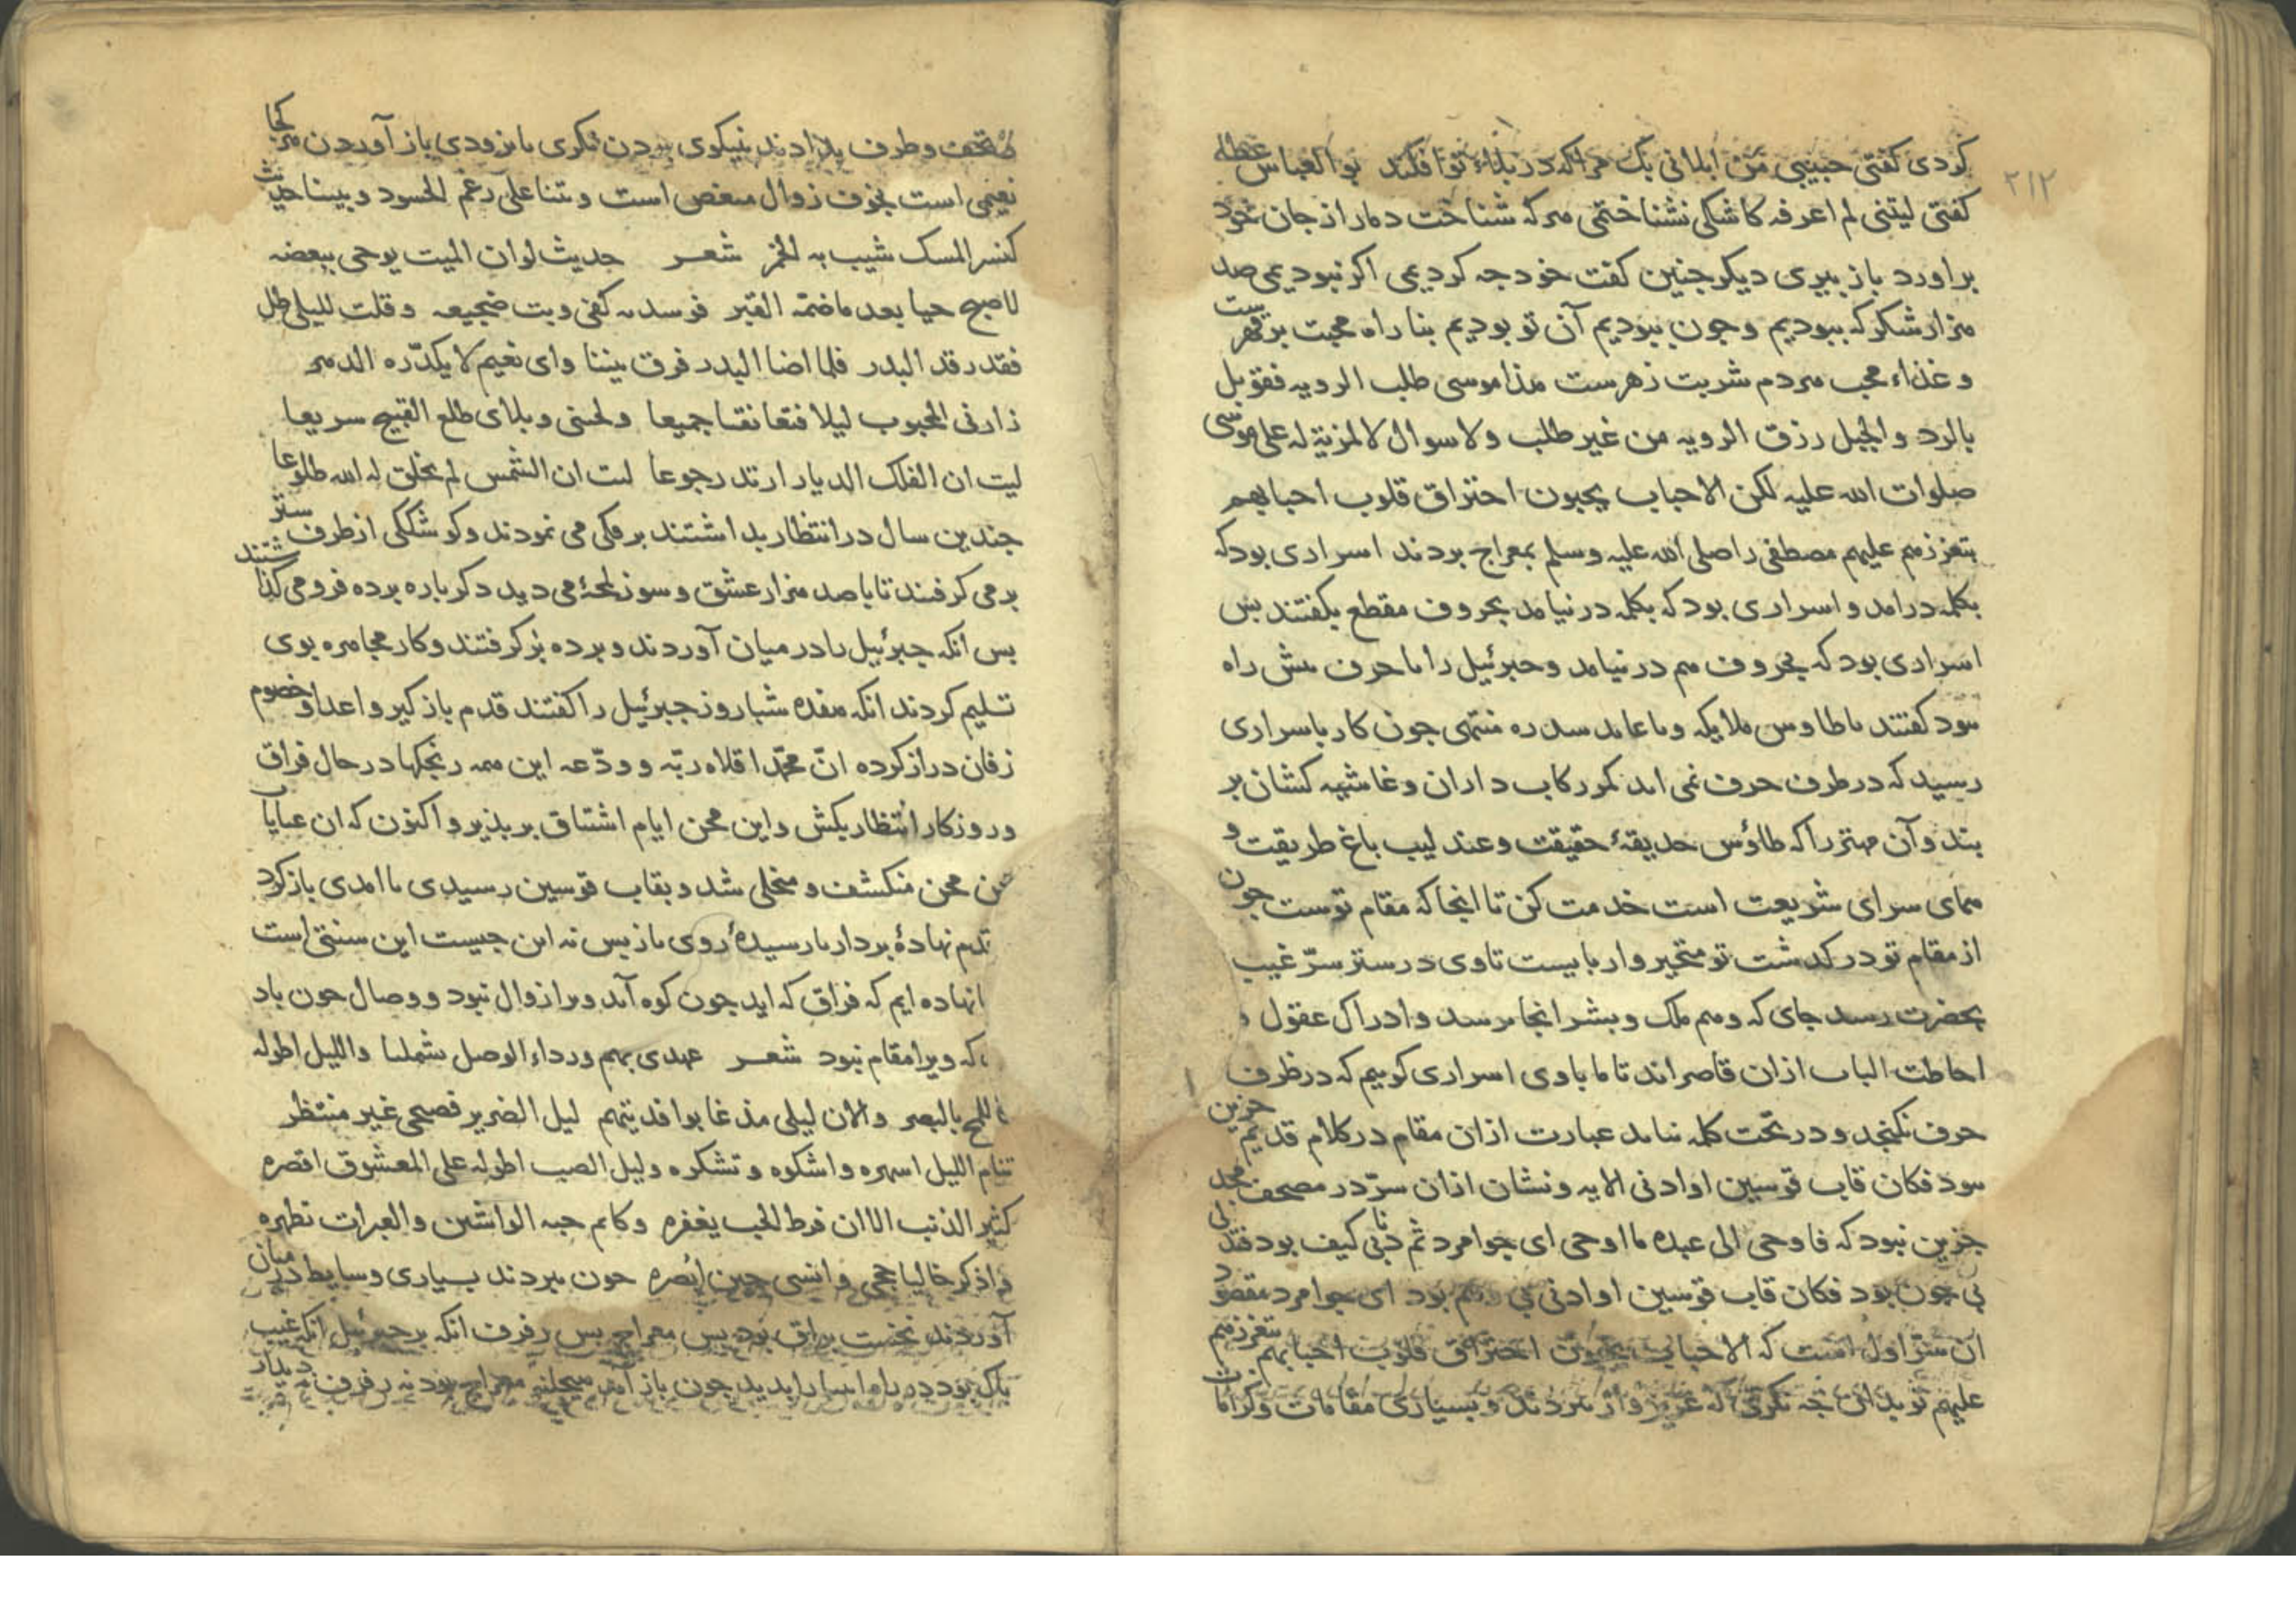 ٢١٢
كردى كفتى حبيبى من ابلانى بك مراكه در بلاء تو افكند بو العباس عطا
كفتى ليتنى لم اعرفه كاشكى نشناختمى مركه شناخت دمار از جان خود
براورد باز پيرى ديكر جنين كفت خود جه كردمى اكر نبودمى صد
مزار شكر كه نبوديم وجون نبوديم آن تو بوديم بنا راه محبت بر قهرست
وغذاء محب مردم شربت زهرست مذا موسى طلب الرويه فقوبل
بالرد والجبل رزق الرويه من غير طلب ولا سوال لا لمزية له على موسى
صلوات الله عليه لكن الاحباب يحبون احتراق قلوب احبابهم
بتعززمم عليهم مصطفى را صلى الله عليه وسلم بمعراج بردند اسرارى بود كه
بكلمه درامد و اسرارى بود كه بكلمه در نيامد بحروف مقطع بكفتند بس
اسرارى بود كه بحروف مم در نيامد وجبرئيل را با حرف بيش راه
نبود كفتند يا طاوس ملايكه ويا عابد سدره منتهى جون كار باسرارى
رسيد كه در ظرف حرف نمى ايد كمر ركاب داران وغاشيه كشان بر
بند و آن مهتر را كه طاؤس حديقهٔ حقيقت وعندليب باغ طريقت و
مماى سراى شريعت است خدمت كن تا انجا كه مقام توست جون
از مقام تو در كدشت تو متحير وار بايست تا وى در ستر سرّ غيب
بحضرت رسد جاى كه ومم ملك وبشر انجا نرسد وادراك عقول و
احاطت الباب ازان قاصراند تا ما با وى اسرارى كوييم كه در ظرف
حرف نكنجد و در تحت كلمه نيايد عبارت ازان مقام در كلام قديم جزين
نبود فكان قاب قوسين او ادنى الايه ونشان ازان سرّ در مصحف مجد
جزين نبود كه فاوحى الى عبده ما اوحى اى جوامرد ثم دنى كيف بود فتدلى
بى جون بود فكان قاب قوسين او ادنى بى ومم بود اى جوامرد مقصود
ان سر اول است كه الاحباب يحبون احتراق قلوب احبابهم بتعززمم
عليهم تو بدانى جه نكرى كه عزيز وار ببردند و بسيارى مقامات وكرامات
تحف وطرف بدادند نيكوى بردن نكرى بازودى باز آوردن مر كجا
نعيمى است بخوف زوال منغص است وبتنا على رغم الحسود وبيننا حديث
كنسر المسك شيب به الخمر شعر حديث لو ان الميت يوحى ببعضه
لاصبح حيا بعد ما ضمه القبر فوسدته كفى وبت ضجيعه وقلت لليلى طل
فقد رقد البدر فلما اضا البدر فرق بيننا واى نعيم لا يكدّره الدمر
زارنى المحبوب ليلا فتعانقنا جميعا ولحسنى وبلاى طلع القبيح سريعا
ليت ان الفلك الديار ارتد رجوعا ليت ان الشمس لم يخلق له الله طلوعا
جندين سال در انتظار بداشتند بر فكى مى نمودند وكوشككى از طرف ستر
برمى كرفتند تا با صد مزار عشق وسوز لمحهٔ مى ديد دكر باره برده فرو مى كذاشتند
بس انكه جبرئيل را در ميان آوردند و برده بر كرفتند وكار مجامره بوى
تسليم كردند انكه مفده شبا روز جبرئيل را كفتند قدم باز كير واعدا وخصوم
زفان دراز كرده انّ محمّدا قلاه ربّه وودّعه اين ممه رنجكها در حال فراق
وروزكار انتظار بكش واين محن ايام اشتياق بر بذير و اكنون كه ان عبايا
محن منكشف و منجلى شد و بقاب قوسين رسيدى با امدى باز كرد
قدم نهادهٔ بردار نا رسيدهٔ روى باز بس نه اين جيست اين سنتى است
نهاده ايم كه فراق كه ايد جون كوه آمد ويرا زوال نبود ووصال جون باد
كه ويرا مقام نبود شعر عهدى بهم ورداء الوصل يشملنا والليل اطوله
كاللمح بالبصر والان ليلى مذ غابوا فديتهم ليل الضرير فصبحى غير منتظر
تنام الليل اسهره واشكوه وتشكره وليل الصب اطوله على المعشوق اقصره
كثير الذنب الا ان فرط الحب يغفره وكاتم حبه الواشين والعبرات تظهره
واذكر خاليا حججى وانسى حين ابصره جون ببردند بسيارى وسايط در ميان
آوردند نخست براق بود بس معراج بس رفرف انكه بر جبرئيل انكه غيب